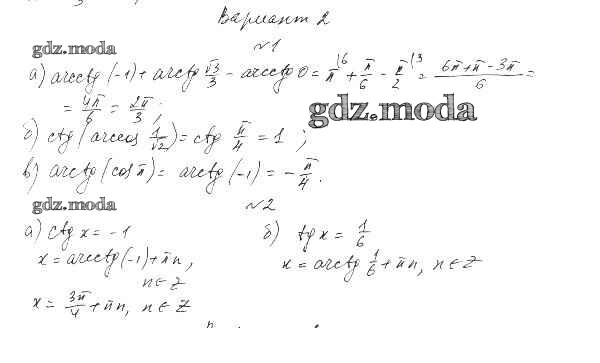 Вариант 2
gdz.moda
№1
а) arcctg(-1) + arctg √3/3 - arcctg 0 = π^(6 + π/6 - π/2^(3 = (6π+π-3π)/6 =
= 4π/6 = 2π/3;
gdz.moda
б) ctg(arccos 1/√2) = ctg π/4 = 1;
в) arctg(cos π) = arctg(-1) = -π/4.
gdz.moda
№2
а) ctg x = -1
x = arcctg(-1) + πn,
n∈Z
x = 3π/4 + πn, n∈Z
б) tg x = 1/6
x = arctg 1/6 + πn, n∈Z